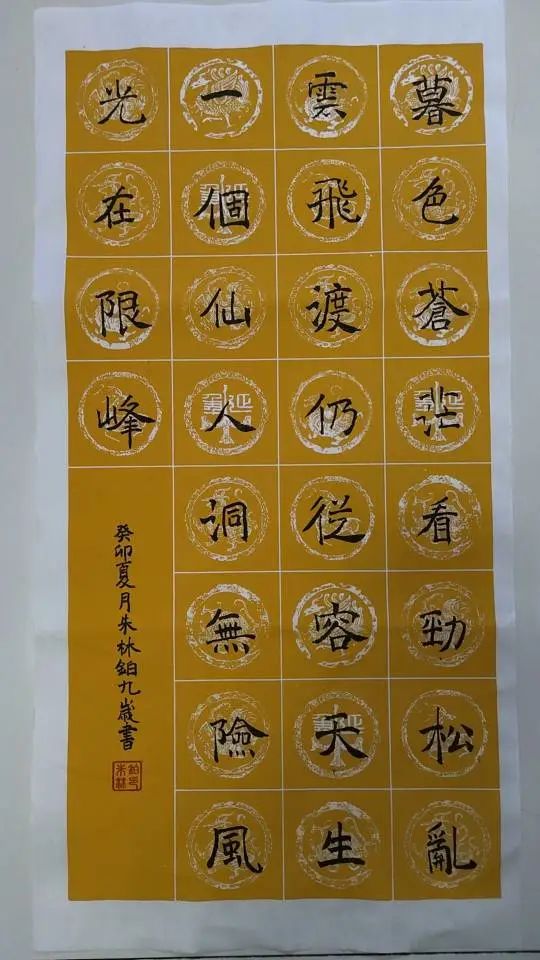 暮色蒼茫看勁松亂
雲飛渡仍從容天生
一個仙人洞無險風
光在限峰
癸卯夏月朱林鉑九歲書